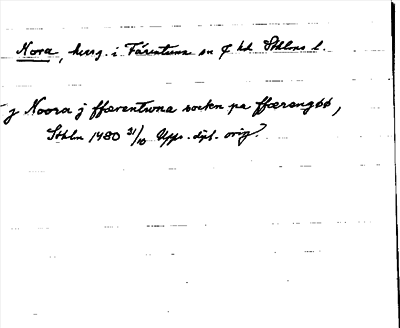 Nora, herrg. i Färentuna sn o. hd Sthlms l.
j Noora j ffærentwna socken pa ffærengøø,
Sthlm 1480 31/10 Upps. dipl. orig.